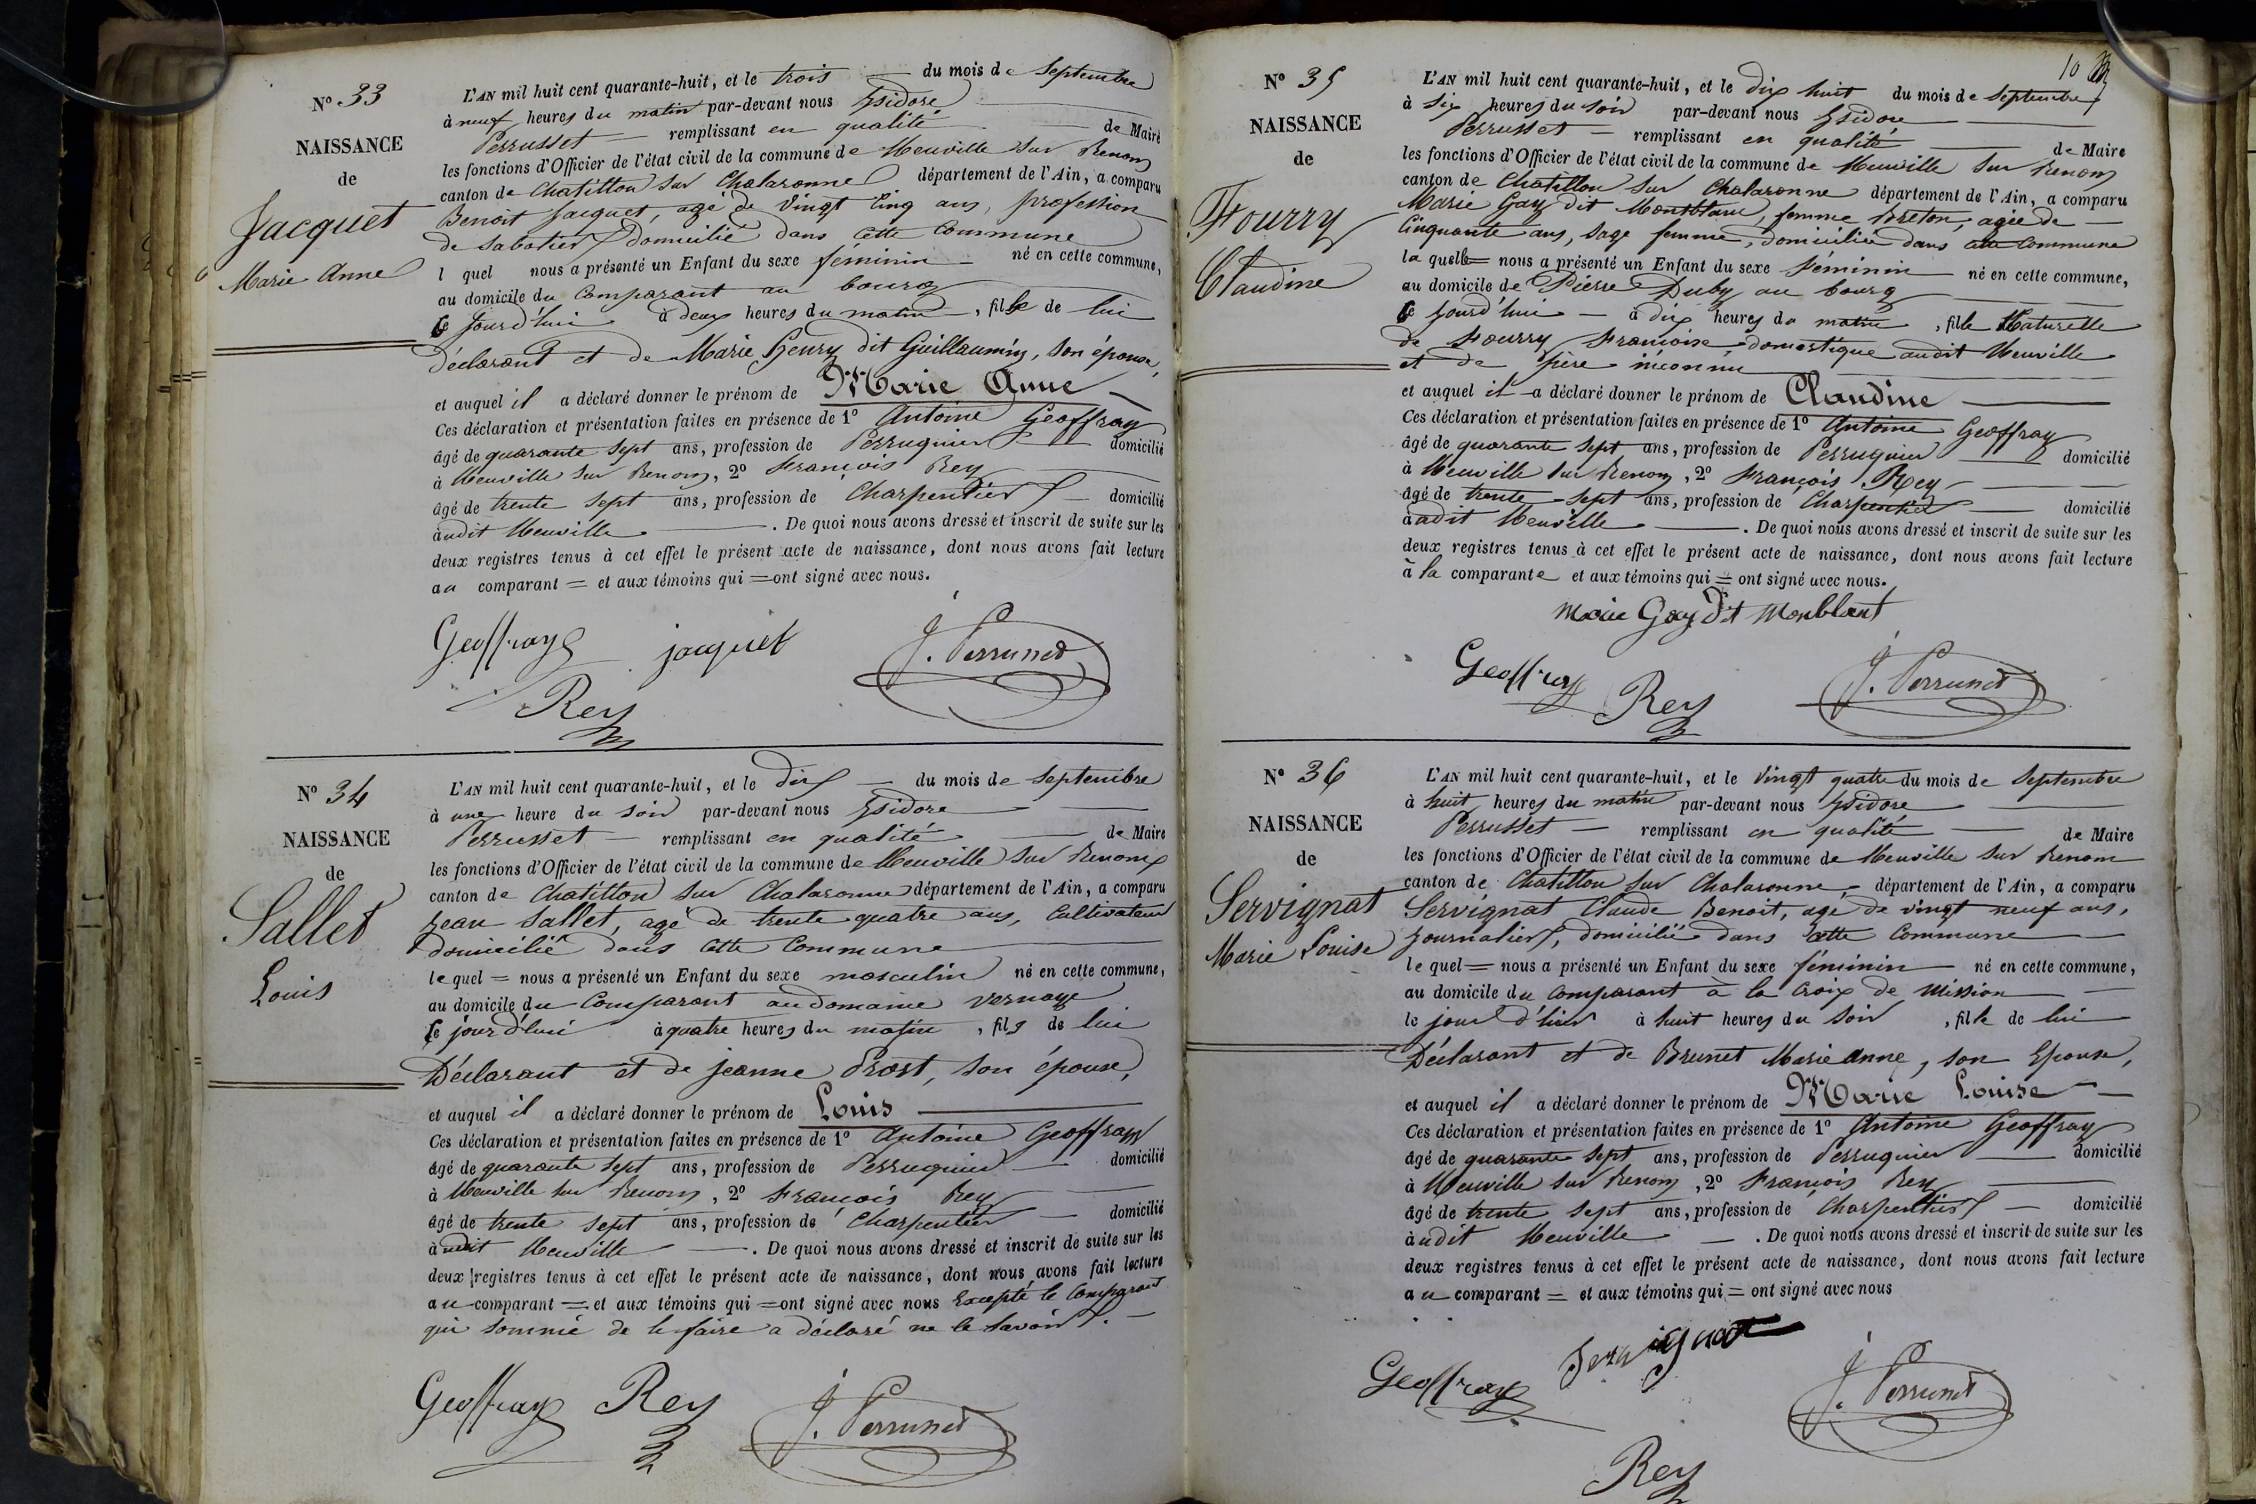 N° 33
NAISSANCE
de
Jacquet
Marie Anne
L'AN mil huit cent quarante-huit, et le trois du mois de Septembre
à neuf heures du matin par-devant nous Isidore
Perrusset remplissant en qualité de Maire
les fonctions d'Officier de l'état civil de la commune de Neuville sur Renom
canton de Chatillon sur Chalaronne département de l'Ain, a comparu
Benoit Jacquet, agé de vingt cinq ans, profession
de Sabotier, domicilié dans cette commune
l quel nous a présenté un Enfant du sexe féminin né en cette commune,
au domicile du Comparant au bourg
ce jourd'hui à deux heures du matin, fille de lui
Déclarant et de Marie Henry dit Guillaumin, son épouse,
et auquel il a déclaré donner le prénom de Marie Anne
Ces déclaration et présentation faites en présence de 1° Antoine Geoffray
âgé de quarante sept ans, profession de Perruquier domicilié
à Neuville sur Renom, 2° François Rey
âgé de trente sept ans, profession de Charpentier domicilié
audit Neuville. De quoi nous avons dressé et inscrit de suite sur les
deux registres tenus à cet effet le présent acte de naissance, dont nous avons fait lecture
au comparant = et aux témoins qui = ont signé avec nous.
Geoffray jacquet J. Perrusset
Rey
N° 34
NAISSANCE
de
Sallet
Louis
L'AN mil huit cent quarante-huit, et le dix du mois de Septembre
à une heure du soir par-devant nous Isidore
Perrusset remplissant en qualité de Maire
les fonctions d'Officier de l'état civil de la commune de Neuville sur Renom
canton de Chatillon sur Chalaronne département de l'Ain, a comparu
Jean Sallet, agé de trente quatre ans, Cultivateur
domicilié dans cette Commune
le quel = nous a présenté un Enfant du sexe masculin né en cette commune,
au domicile du Comparant au domaine vernage
ce jourd'hui à quatre heures du matin, fils de lui
Déclarant et de jeanne Prost, son épouse,
et auquel il a déclaré donner le prénom de Louis
Ces déclaration et présentation faites en présence de 1° Antoine Geoffray
âgé de quarante sept ans, profession de Perruquier domicilié
à Neuville sur Renom, 2° François Rey
âgé de trente sept ans, profession de Charpentier domicilié
audit Neuville. De quoi nous avons dressé et inscrit de suite sur les
deux registres tenus à cet effet le présent acte de naissance, dont nous avons fait lecture
au comparant = et aux témoins qui = ont signé avec nous Excepté le Comparant
qui sommé de le faire a déclaré ne le savoir.
Geoffray Rey J. Perrusset
10
N° 35
NAISSANCE
de
Fourry
Claudine
L'AN mil huit cent quarante-huit, et le dix huit du mois de Septembre
à six heures du soir par-devant nous Isidore
Perrusset remplissant en qualité de Maire
les fonctions d'Officier de l'état civil de la commune de Neuville sur Renom
canton de Chatillon sur Chalaronne département de l'Ain, a comparu
Marie Gay dit Montblanc, femme Breton, agée de
Cinquante ans, sage femme, domiciliée dans cette Commune
la quelle = nous a présenté un Enfant du sexe Féminin né en cette commune,
au domicile de Pierre Duby au bourg
ce jourd'hui à dix heures du matin, fille Naturelle
de Fourry Françoise domestique audit Neuville
et de père inconnu
et auquel il a déclaré donner le prénom de Claudine
Ces déclaration et présentation faites en présence de 1° Antoine Geoffray
âgé de quarante sept ans, profession de Perruquier domicilié
à Neuville sur Renom, 2° François Rey
âgé de trente sept ans, profession de Charpentier domicilié
audit Neuville. De quoi nous avons dressé et inscrit de suite sur les
deux registres tenus à cet effet le présent acte de naissance, dont nous avons fait lecture
à la comparante et aux témoins qui = ont signé avec nous.
Marie Gay Dit Monblant
Geoffray Rey J. Perrusset
N° 36
NAISSANCE
de
Servignat
Marie Louise
L'AN mil huit cent quarante-huit, et le vingt quatre du mois de Septembre
à huit heures du matin par-devant nous Isidore
Perrusset remplissant en qualité de Maire
les fonctions d'Officier de l'état civil de la commune de Neuville sur Renom
canton de Chatillon sur Chalaronne, département de l'Ain, a comparu
Servignat Claude Benoit, agé de vingt neuf ans,
journalier, domicilié dans cette Commune
le quel = nous a présenté un Enfant du sexe féminin né en cette commune,
au domicile du comparant à la Croix de Mission
le jour d'hier à huit heures du soir, fille de lui
Déclarant et de Brunet Marie Anne, son Epouse,
et auquel il a déclaré donner le prénom de Marie Louise
Ces déclaration et présentation faites en présence de 1° Antoine Geoffray
âgé de quarante sept ans, profession de Perruquier domicilié
à Neuville sur Renom, 2° François Rey
âgé de trente sept ans, profession de Charpentier domicilié
audit Neuville. De quoi nous avons dressé et inscrit de suite sur les
deux registres tenus à cet effet le présent acte de naissance, dont nous avons fait lecture
au comparant = et aux témoins qui = ont signé avec nous
Geoffray Servignat J. Perrusset
Rey